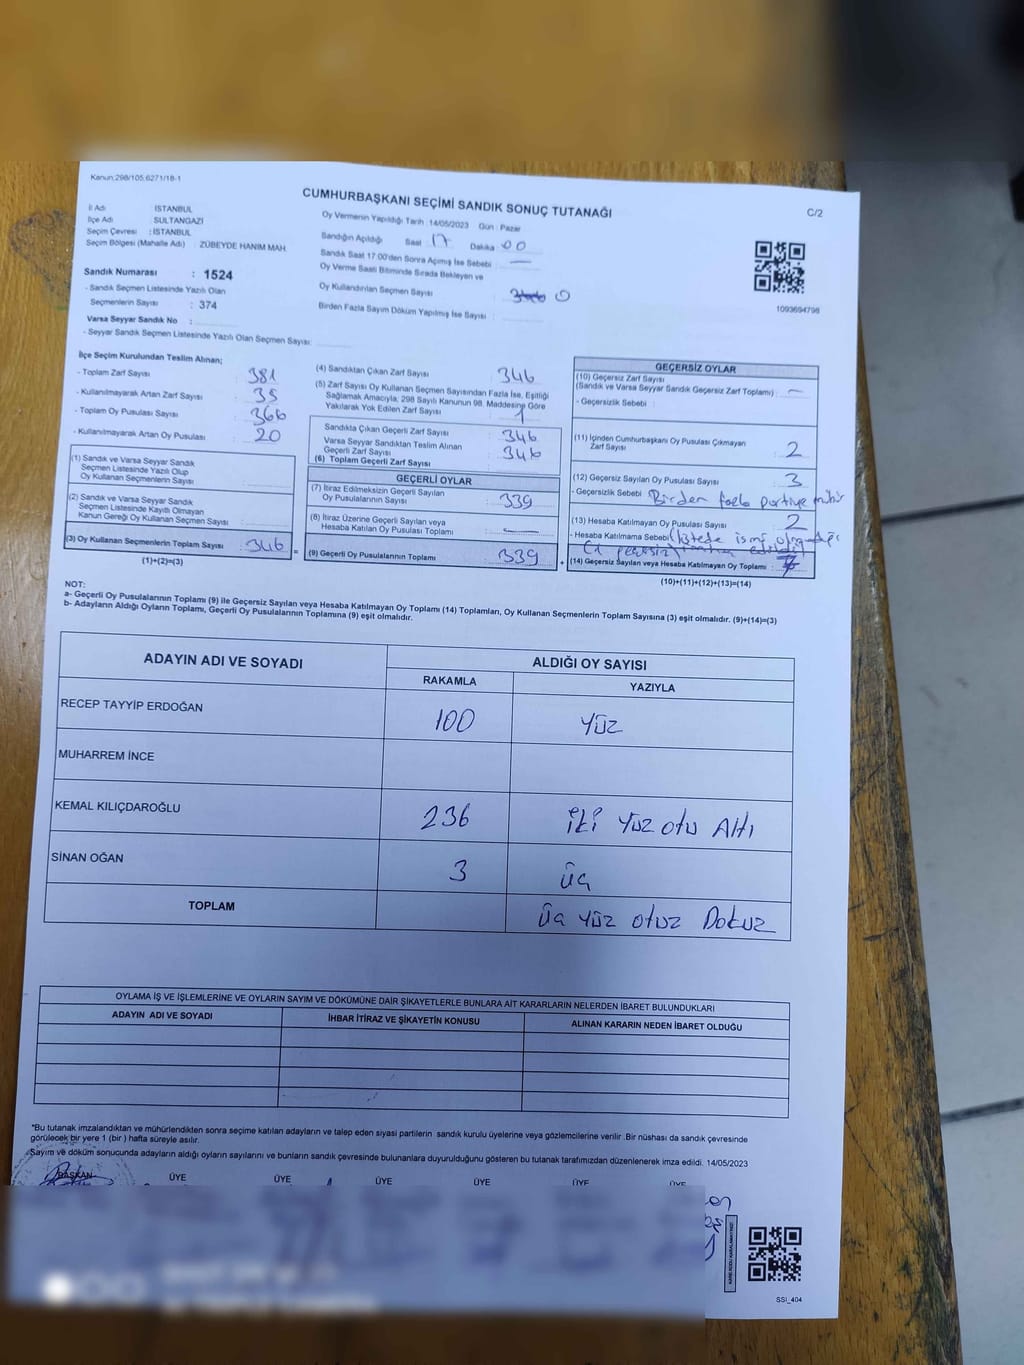 Kanun:298/105,6271/18-1
CUMHURBAŞKANI SEÇİMİ SANDIK SONUÇ TUTANAĞI
C/2
İl Adı : İSTANBUL
İlçe Adı : SULTANGAZİ
Seçim Çevresi : İSTANBUL
Seçim Bölgesi (Mahalle Adı) : ZÜBEYDE HANIM MAH.
Sandık Numarası : 1524
- Sandık Seçmen Listesinde Yazılı Olan
Seçmenlerin Sayısı : 374
Varsa Seyyar Sandık No :
- Seyyar Sandık Seçmen Listesinde Yazılı Olan Seçmen Sayısı:
Oy Vermenin Yapıldığı Tarih :14/05/2023 Gün : Pazar
Sandığın Açıldığı Saat 17 Dakika 00
Sandık Saat 17:00'den Sonra Açımış İse Sebebi : —
Oy Verme Saati Bitiminde Sırada Bekleyen ve
Oy Kullandırılan Seçmen Sayısı : 0
Birden Fazla Sayım Döküm Yapılmış İse Sayısı :
1093694798
İlçe Seçim Kurulundan Teslim Alınan;
- Toplam Zarf Sayısı : 381
- Kullanılmayarak Artan Zarf Sayısı : 35
- Toplam Oy Pusulası Sayısı : 366
- Kullanılmayarak Artan Oy Pusulası : 20
(1) Sandık ve Varsa Seyyar Sandık
Seçmen Listesinde Yazılı Olup
Oy Kullanan Seçmenlerin Sayısı :
(2) Sandık ve Varsa Seyyar Sandık
Seçmen Listesinde Kayıtlı Olmayan
Kanun Gereği Oy Kullanan Seçmen Sayısı :
(3) Oy Kullanan Seçmenlerin Toplam Sayısı : 346
(1)+(2)=(3)
=
(4) Sandıktan Çıkan Zarf Sayısı : 346
(5) Zarf Sayısı Oy Kullanan Seçmen Sayısından Fazla İse, Eşitliği
Sağlamak Amacıyla, 298 Sayılı Kanunun 98. Maddesine Göre
Yakılarak Yok Edilen Zarf Sayısı :
Sandıkta Çıkan Geçerli Zarf Sayısı : 346
Varsa Seyyar Sandıktan Teslim Alınan
Geçerli Zarf Sayısı : 346
(6) Toplam Geçerli Zarf Sayısı :
GEÇERLİ OYLAR
(7) İtiraz Edilmeksizin Geçerli Sayılan
Oy Pusulalarının Sayısı : 339
(8) İtiraz Üzerine Geçerli Sayılan veya
Hesaba Katılan Oy Pusulası Toplamı : —
(9) Geçerli Oy Pusulalarının Toplamı : 339
+
GEÇERSİZ OYLAR
(10) Geçersiz Zarf Sayısı
(Sandık ve Varsa Seyyar Sandık Geçersiz Zarf Toplamı) : —
- Geçersizlik Sebebi :
(11) İçinden Cumhurbaşkanı Oy Pusulası Çıkmayan
Zarf Sayısı : 2
(12) Geçersiz Sayılan Oy Pusulası Sayısı : 3
- Geçersizlik Sebebi : Birden fazla partiye mühür
(13) Hesaba Katılmayan Oy Pusulası Sayısı : 2
- Hesaba Katılmama Sebebi (listede ismi
(14) Geçersiz Sayılan veya Hesaba Katılmayan Oy Toplamı : 7
(10)+(11)+(12)+(13)=(14)
NOT:
a- Geçerli Oy Pusulalarının Toplamı (9) ile Geçersiz Sayılan veya Hesaba Katılmayan Oy Toplamı (14) Toplamları, Oy Kullanan Seçmenlerin Toplam Sayısına (3) eşit olmalıdır. (9)+(14)=(3)
b- Adayların Aldığı Oyların Toplamı, Geçerli Oy Pusulalarının Toplamına (9) eşit olmalıdır.
ADAYIN ADI VE SOYADI
ALDIĞI OY SAYISI
RAKAMLA
YAZIYLA
RECEP TAYYİP ERDOĞAN 100 yüz
MUHARREM İNCE
KEMAL KILIÇDAROĞLU 236 iki yüz otu Altı
SİNAN OĞAN 3 üç
TOPLAM üç yüz otuz Dokuz
OYLAMA İŞ VE İŞLEMLERİNE VE OYLARIN SAYIM VE DÖKÜMÜNE DAİR ŞİKAYETLERLE BUNLARA AİT KARARLARIN NELERDEN İBARET BULUNDUKLARI
ADAYIN ADI VE SOYADI
İHBAR İTİRAZ VE ŞİKAYETİN KONUSU
ALINAN KARARIN NEDEN İBARET OLDUĞU
*Bu tutanak imzalandıktan ve mühürlendikten sonra seçime katılan adayların ve talep eden siyasi partilerin sandık kurulu üyelerine veya gözlemcilerine verilir .Bir nüshası da sandık çevresinde
görülecek bir yere 1 (bir ) hafta süreyle asılır.
Sayım ve döküm sonucunda adayların aldığı oyların sayılarını ve bunların sandık çevresinde bulunanlara duyurulduğunu gösteren bu tutanak tarafımızdan düzenlenerek imza edildi. 14/05/2023
BAŞKAN ÜYE ÜYE ÜYE ÜYE ÜYE ÜYE
KARE KODU KARALAMAYINIZ!
SSI_404